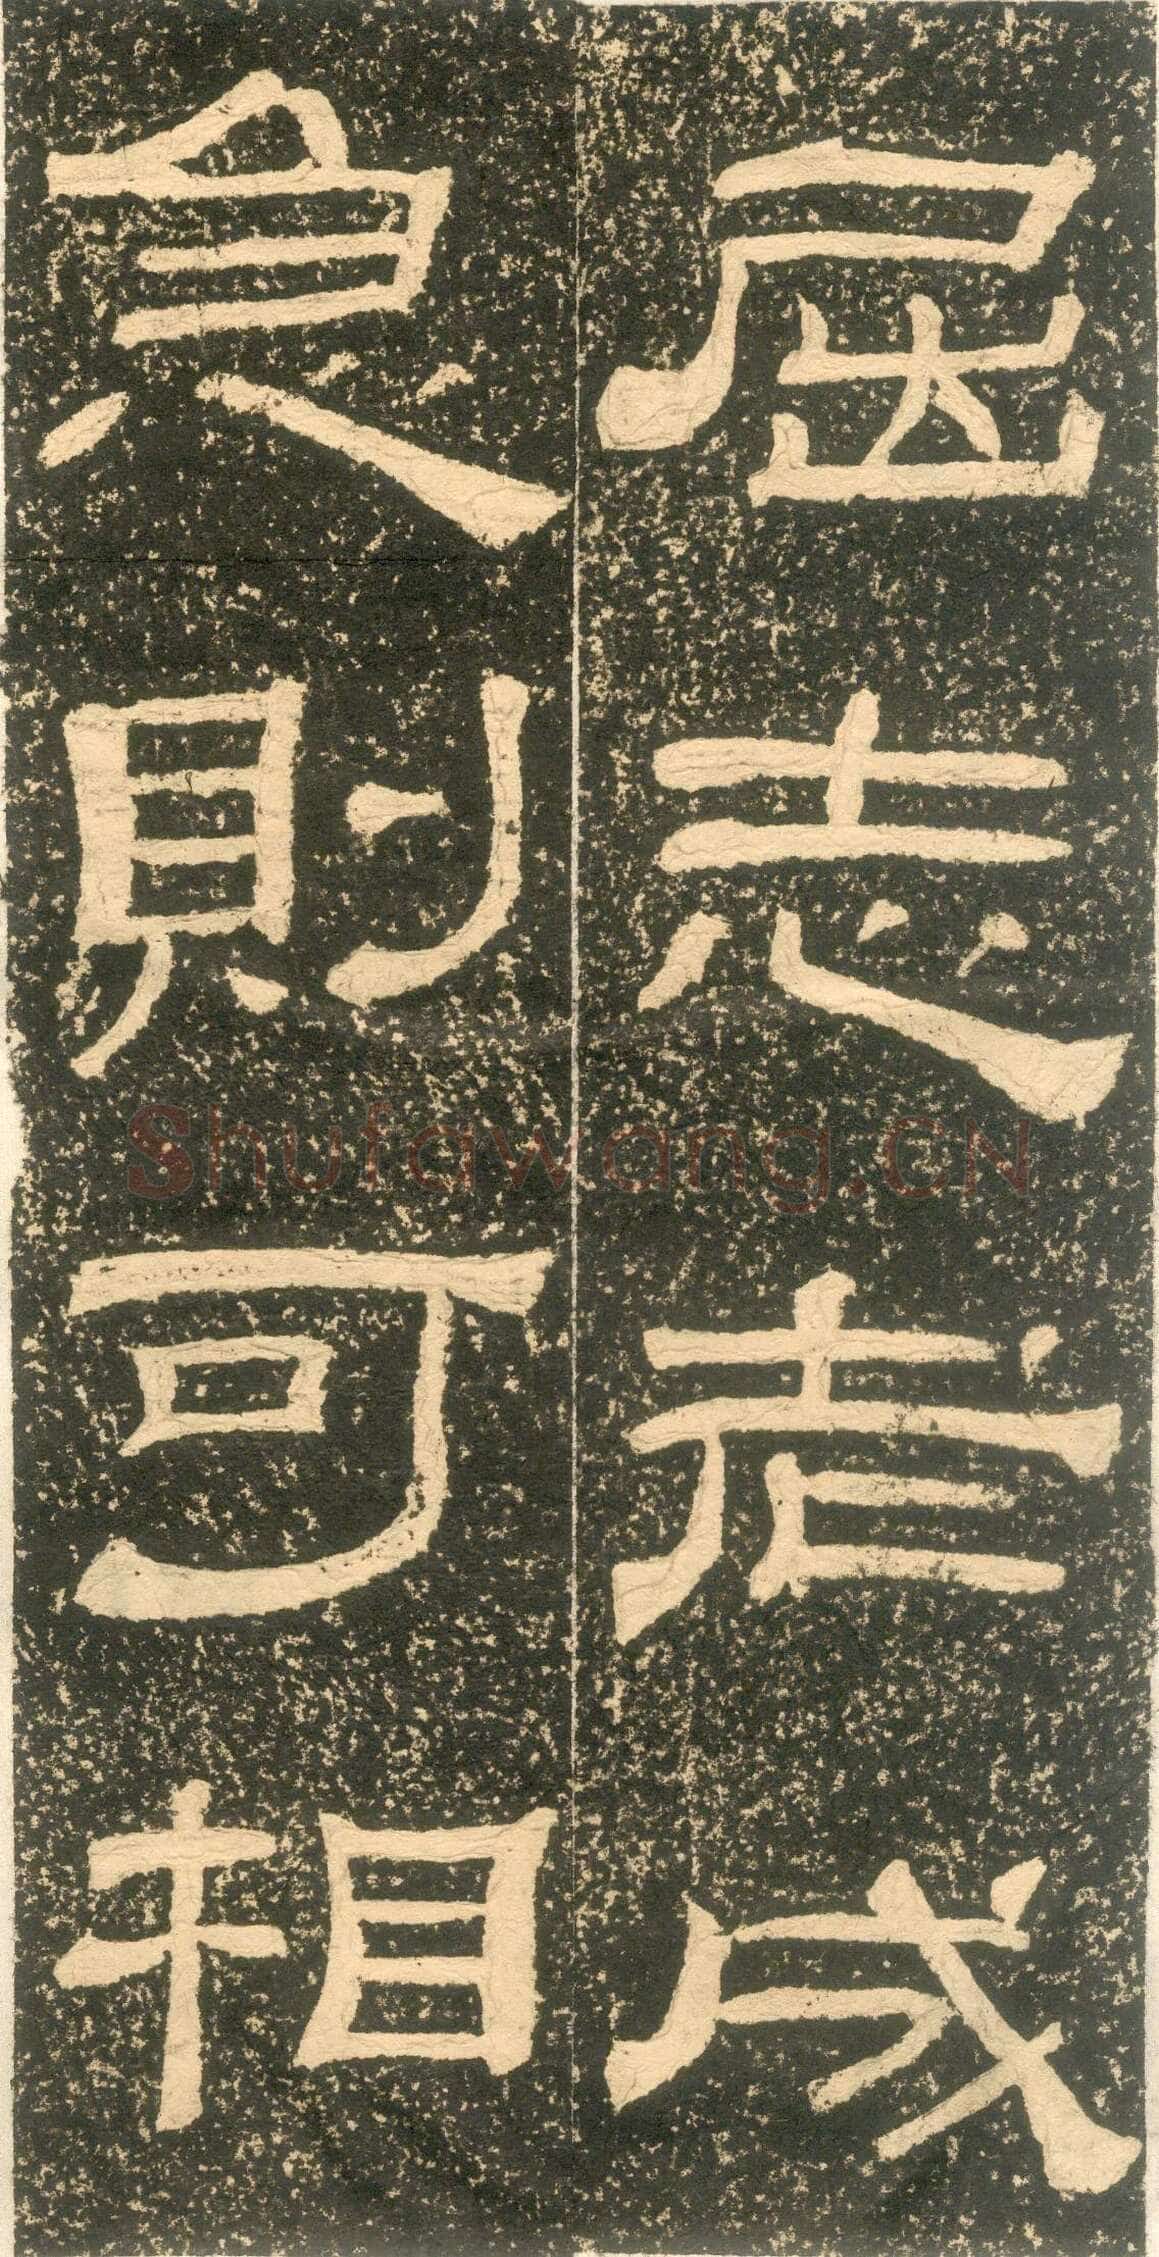 屈志老成
急則可相
Shufawang.CN